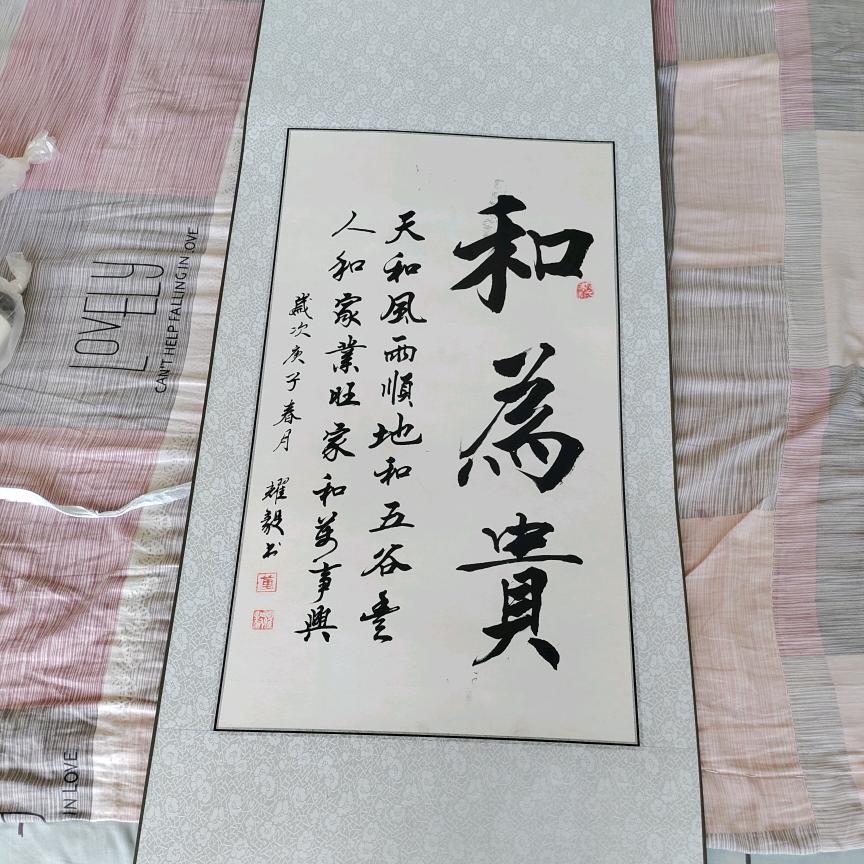 和為貴
天和風雨順地和五谷豊
人和家業旺家和萬事興
歲次庚子春月 耀毅书
LOVELY
CAN'T HELP FALLING IN LOVE
IN LOVE